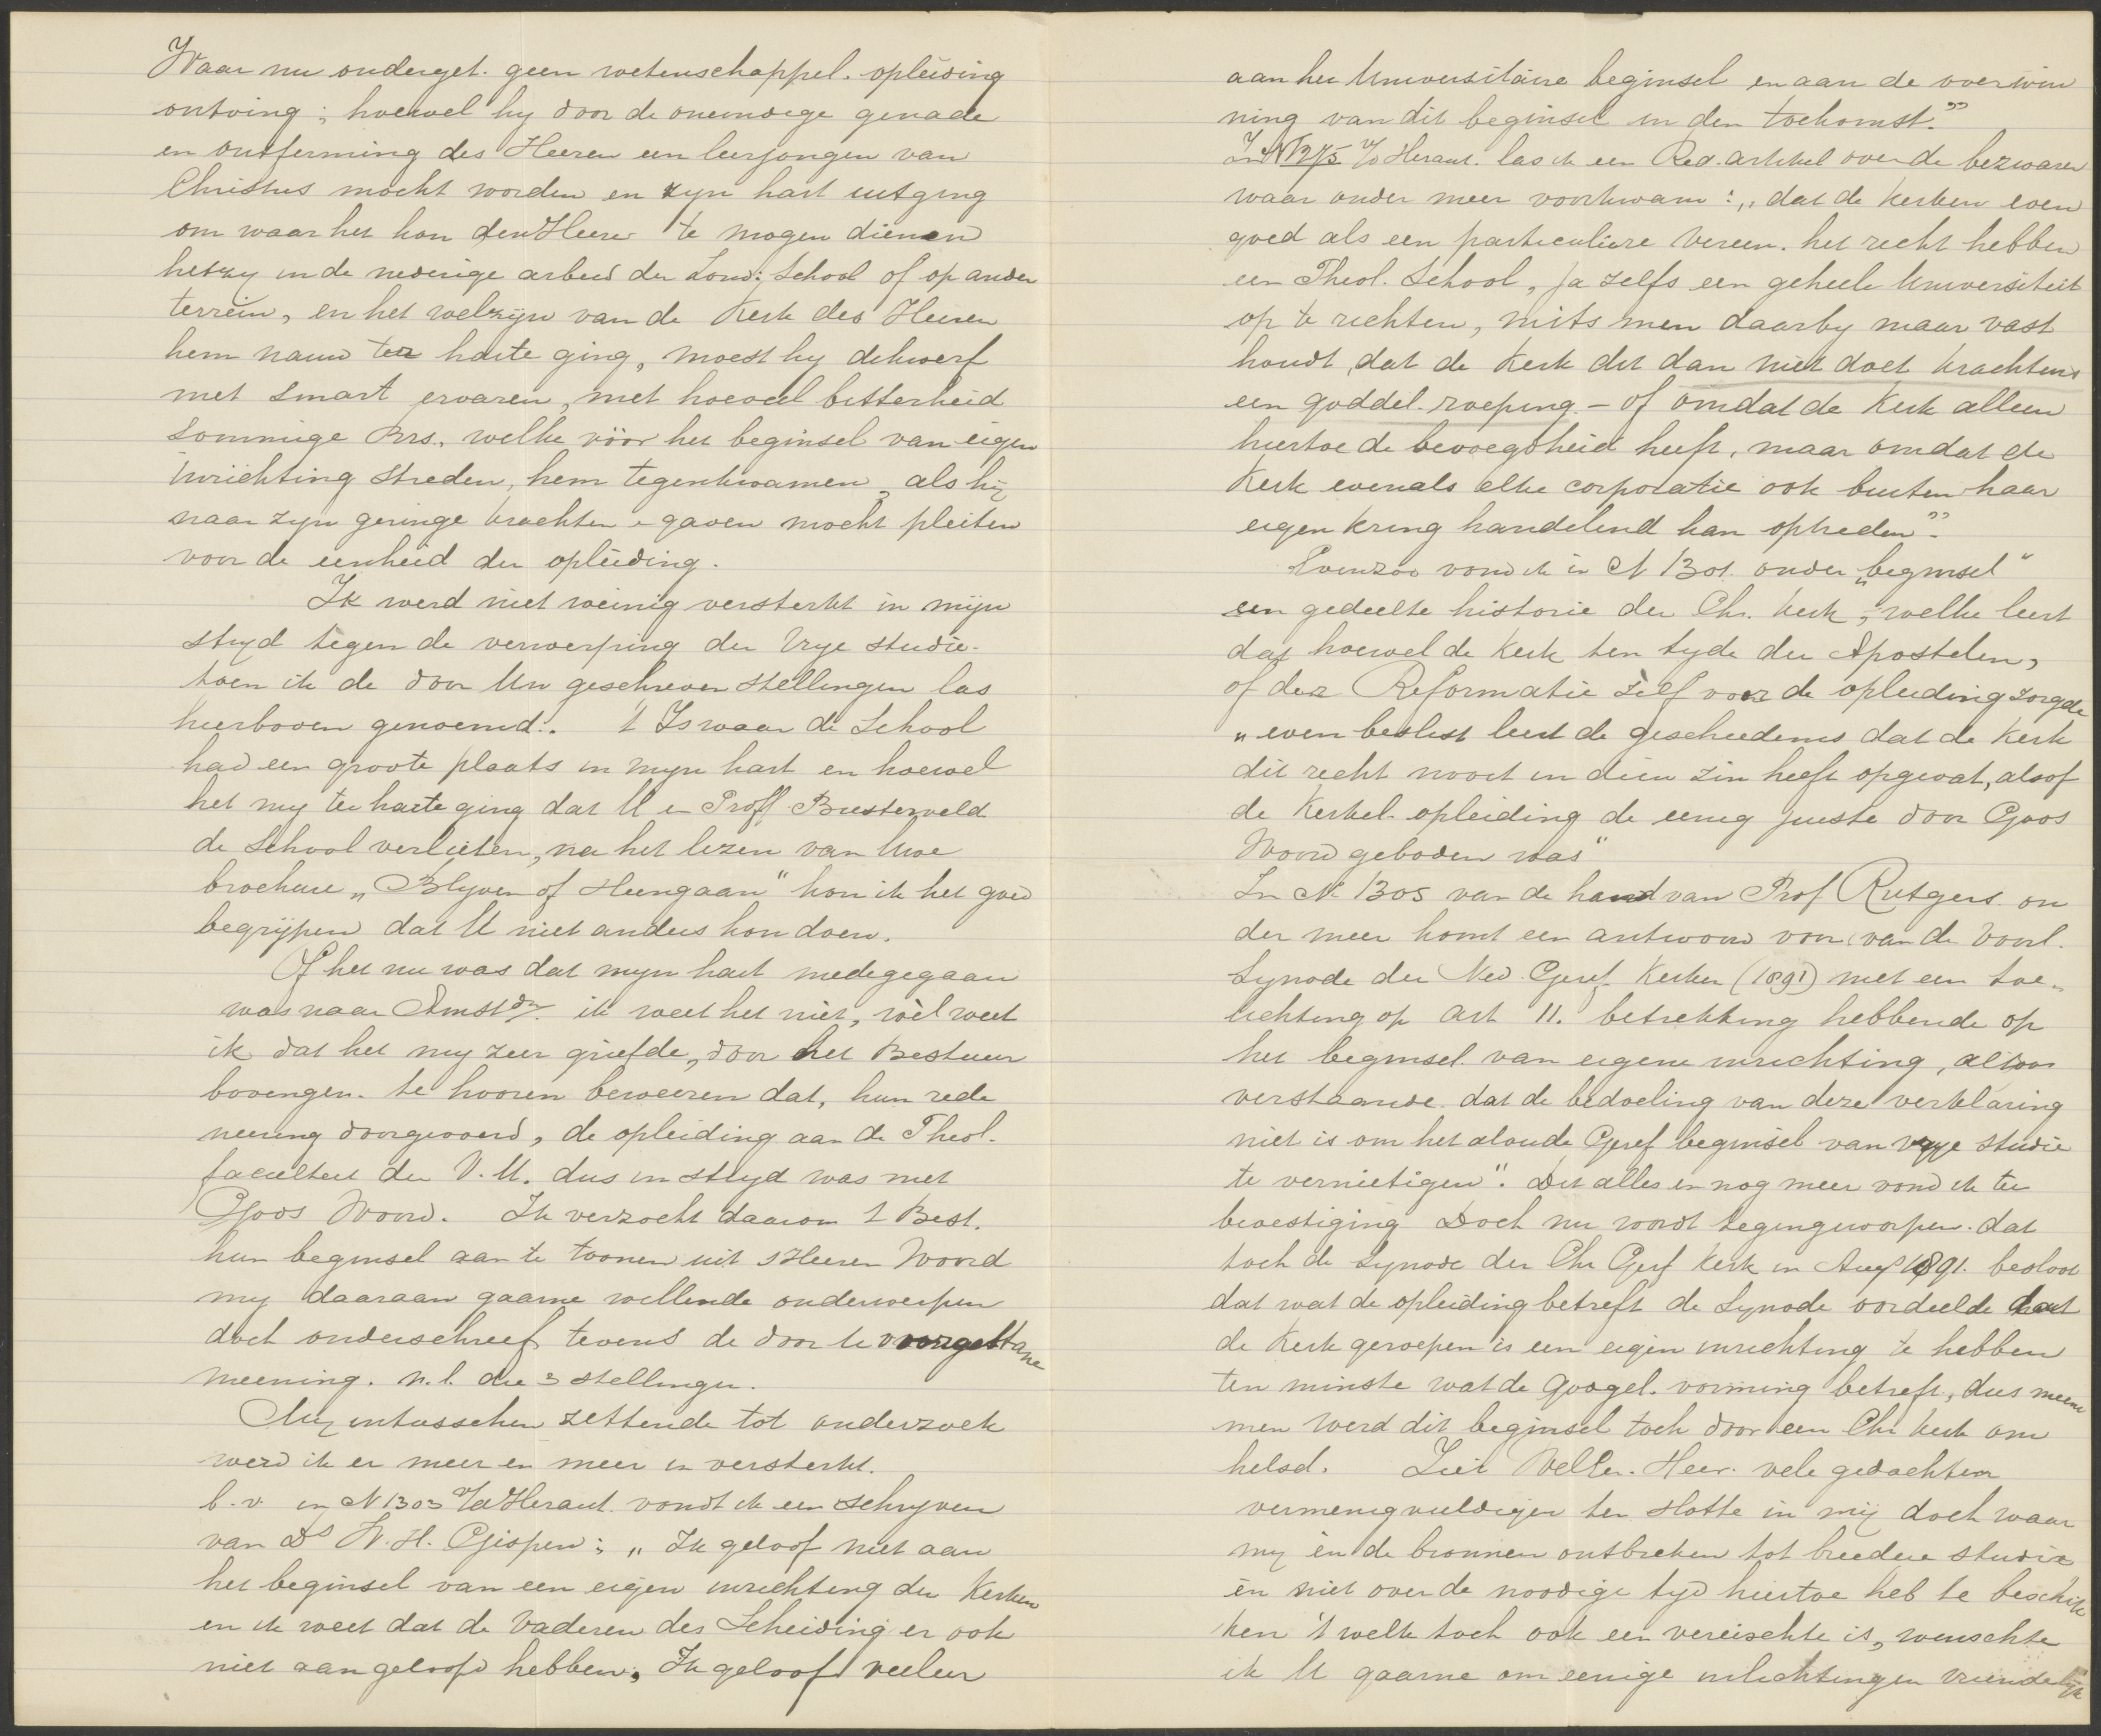 Waar nu onderget. geen wetenschappel. opleiding
ontving; hoewel hy door de oneindige genade
en ontferming des Heeren een leerjongen van
Christus mocht worden en zyn hart uitging
om waar het kon den Heere te mogen dienen
hetzy in de nederige arbeid der Zond: School of op ander
terrein, en het welzijn van de Kerk des Heeren
hem nauw ter harte ging, moest hy dikwerf
met smart ervaren, met hoeveel bitterheid
sommige Brs., welke vóór het beginsel van eigen
inrichting streden, hem tegenkwamen, als hij
naar zyn geringe krachten en gaven mocht pleiten
voor de eenheid der opleiding.
Ik werd niet weinig versterkt in mijn
stryd tegen de verwerping der Vrye studie.
toen ik de door Uw geschreven stellingen las
hierboven genoemd. 't Is waar de School
had een groote plaats in myn hart en hoewel
het my ter harte ging dat U en Proff Biesterveld
de School verlieten, na het lezen van Uwe
brochure „Blyven of Heengaan" kon ik het goed
begrijpen dat U niet anders kon doen.
Of het nu was dat myn hart medegegaan
was naar Amstdm. ik weet het niet, wèl weet
ik dat het my zeer griefde, door het Bestuur
bovengen. te hooren beweeren dat, hun rede
neering doorgevoerd, de opleiding aan de Theol.
faculteit der V.U. dus in stryd was met
Gods Woord. Ik verzocht daarom 't Best.
hun beginsel aan te toonen uit s'Heeren Woord
my daaraan gaarne willende onderwerpen
doch onderschreef tevens de door U voorgestane
meening. n.l. die 3 stellingen.
My intusschen zettende tot onderzoek
werd ik er meer en meer in versterkt.
b.v. in N 1303 v/d Heraut. vondt ik een schryven
van Ds W.H. Gispen: „Ik geloof niet aan
het beginsel van een eigen inrichting der Kerken
en ik weet dat de Vaderen des Scheiding er ook
niet aan geloofd hebben, Ik geloof veeleer
aan het Universitaire beginsel en aan de overwin
ning van dit beginsel in den toekomst."
In N 1275 v/d Heraut. las ik een Red. artikel over de bezwaren
waar onder meer voorkwam: „dat de Kerken even
goed als een particuliere Vereen. het recht hebben
een Theol. School, ja zelfs een geheele Universiteit
op te richten, mits men daarby maar vast
houdt, dat de Kerk dit dan niet doet krachtens
een goddel. roeping – of omdat de Kerk alleen
hiertoe de bevoegdheid heeft, maar omdat de
Kerk evenals elke corporatie ook buiten haar
eigen kring handelend kan optreden".
Evenzoo vond ik in N 1301. onder „beginsel"
een gedeelte historie der Chr. Kerk, welke leert
dat hoewel de Kerk ten tyde der Apostelen,
of der Reformatie zelf voor de opleiding zorgde
„even beslist leert de geschiedenis dat de Kerk
dit recht nooit in dien zin heeft opgevat, alsof
de Kerkel. opleiding de eenig juiste door Gods
Woord geboden was"
In N 1305 van de hand van Prof Rutgers on
der meer komt een antwoord voor van de Voorl.
Synode der Ned. Geref. Kerken (1891) met een toe-
lichting op art 11. betrekking hebbende op
het beginsel van eigene inrichting, aldoor
verstaande dat de bedoeling van deze verklaring
niet is om het aloude Geref beginsel van vrye studie
te vernietigen". Dit alles en nog meer vond ik ter
bevestiging Doch nu wordt tegengeworpen. dat
toch de Synode der Chr Geref Kerk in Aug 1891. besloot
dat wat de opleiding betreft de Synode oordeelde dat
de Kerk geroepen is een eigen inrichting te hebben
ten minste wat de Godgel. vorming betreft, dus meene
men werd dit beginsel toch door een Chr Kerk om
helsd. Ziet WelEw. Heer. vele gedachten
vermenigvuldigen ten slotte in mij doch waar
my én de bronnen ontbreken tot breedere studie
én niet over de noodige tyd hiertoe heb te beschik
ken 't welk toch ook een vereischte is, wenschte
ik U gaarne om eenige inlichtingen vriendelijk